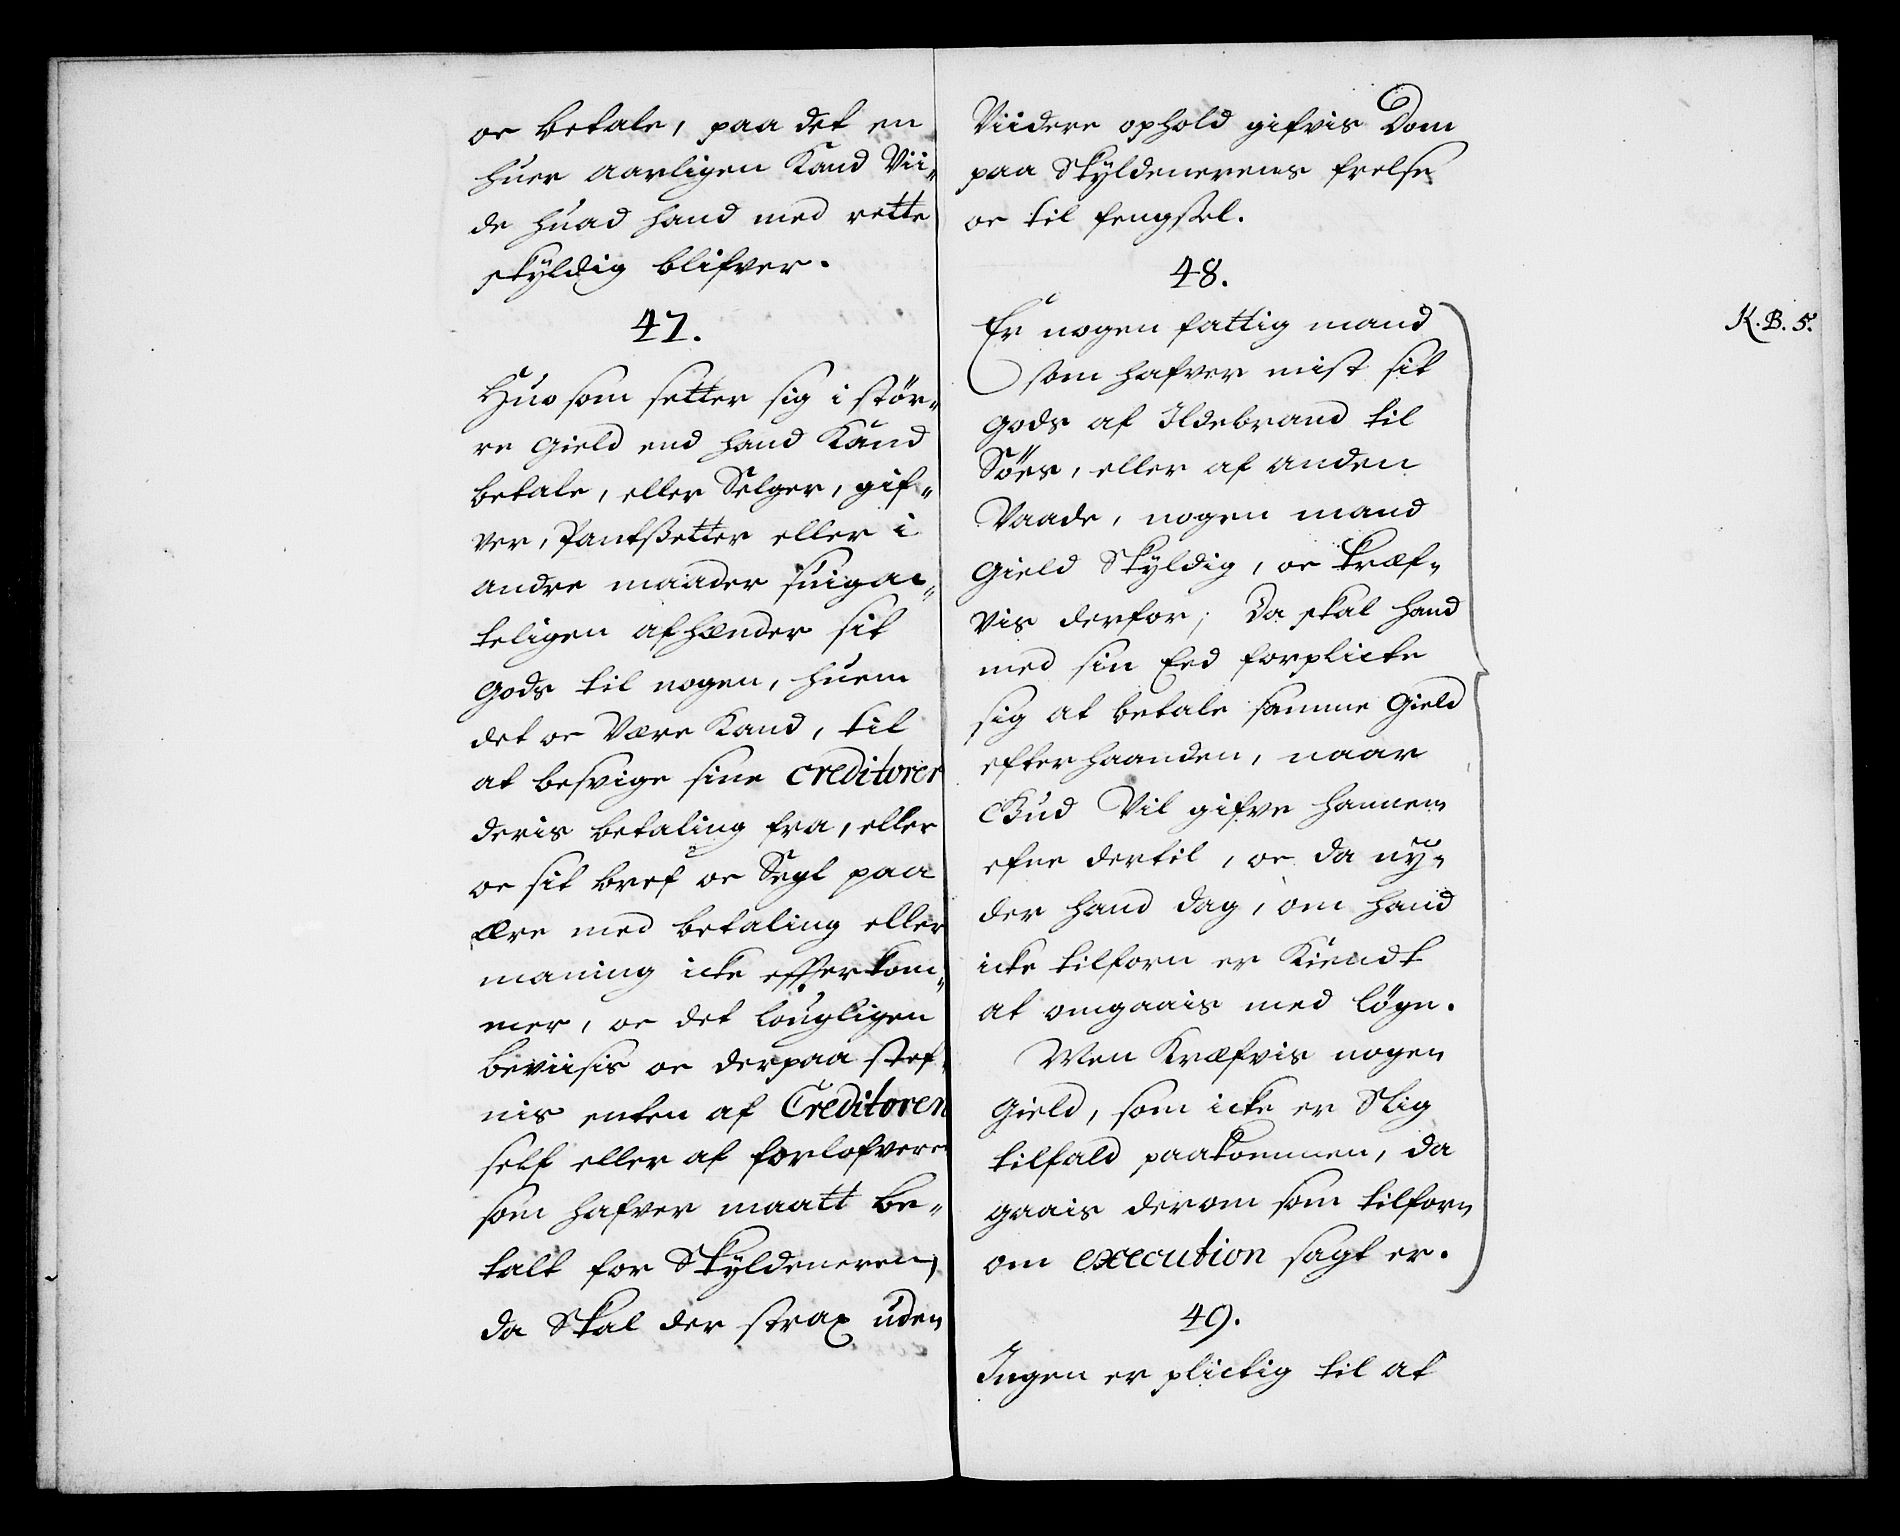 oc betale, paa det en
huer aarligen Kand Vii„
de huad hand med rette
skyldig blifver.
47.
Huo som setter sig i stör„
re gield end hand Kand
betale, eller Selger, gif„
ver, Pantsetter eller i
andre maader suigac„
teligen afhænder sit
gods til nogen, huem
det oc Være Kand, til
at besvige sine creditorer
deris betaling fra, eller
oc sit bref oc Segl paa
ære med betaling eller
maning icke efterkom„
mer, oc det lougligen
beviisis oc derpaa stef„
nis enten af Creditoren
self eller af forlofveren
som hafver maatt be„
talt for Skyldeneren,
da Skal der strax uden
Viidere ophold gifvis Dom
paa Skyldenerens frelse
oc til fengsel.
48.
Er nogen fattig mand
som hafver mist sit
gods af Ildebrand til
Söes, eller af anden
Vaade, nogen mand
gield Skyldig, oc kræf„
vis derfor; Da skal hand
med sin Eed forplicte
sig at betale samme gield
efterhaanden, naar
Gud Vil gifve hannem
efne dertil, oc da ny„
der hand dag, om hand
icke tilforn er Kiendt
at omgaais med lögn.
Men Kræfvis nogen
gield, som icke er Slig
tilfald paakommen, da
gaais derom som tilforn
om execution sagt er.
49.
Ingen er plictig til at
K. B. 5.